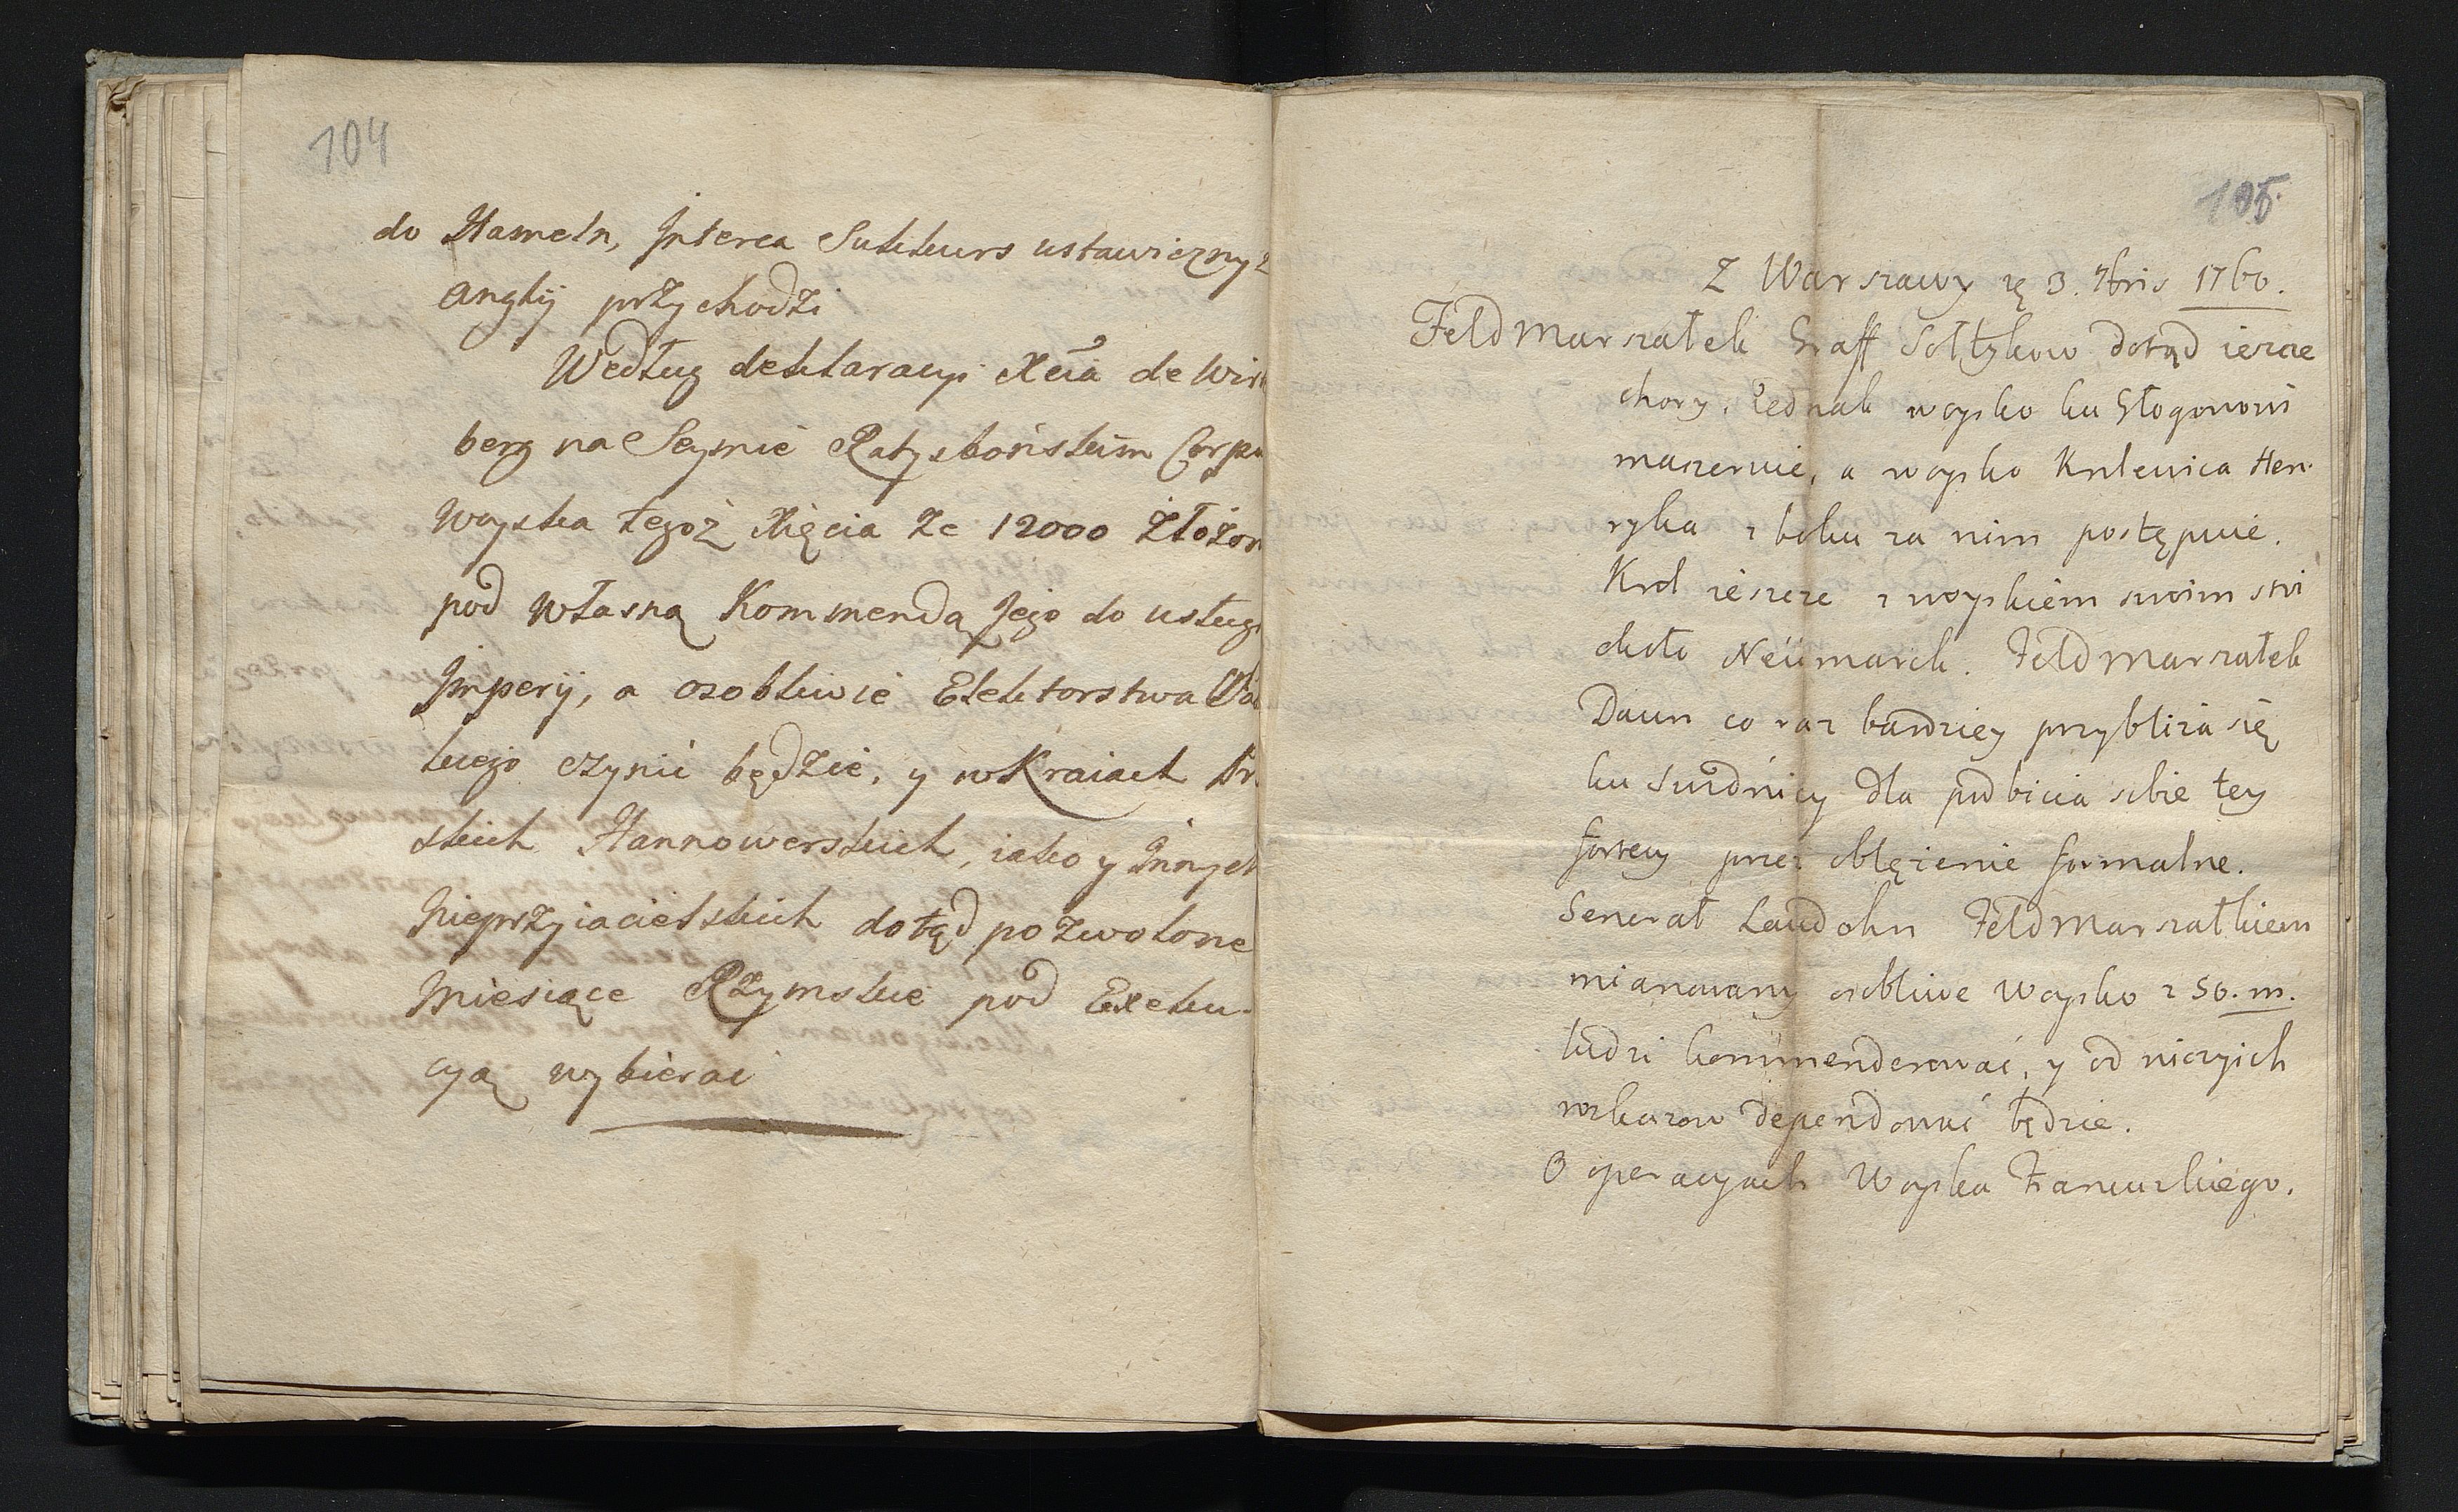 104
do Hameln, Jnterea Sukkurs ustawiczny z
Anglij przychodzi
Według deklaracyi Xcia de Wir
berg na Seymie Ratysbońskim Corpu
Woyska tegoż Xięcia ze 12000 złożon
pod własną Kommendą Jego do usług
Jmperij, a osobliwie Elektorstwa
kiego czynić będzie, y w Kraiach
skich Hannowerskich, iako y Jnnych
Nieprzyiacielskich dotąd pozwolone
Miesiące Rzymskie pod Exeku-
cyą wybierać
105.
Z Warszawy 3. 7bris 1760.
FeldMarszałek Graff Sołtykow dotąd ieszcze
chory. Jednak woysko ku Głogowowi
maszeruie, a woysko Krolewica Hen-
ryka z boku za nim postępuie.
Krol ieszcze z woyskiem swoim stoi
około Neümarck. FeldMarszałek
Daun co raz bardziey przybliża się
ku Swidnicy dla podbicia sobie tey
fortecy przez oblęzenie formalne.
Generał Laudohn FeldMarszałkiem
mianowany osobliwe Woysko z 50. m.
ludzi kommenderować, y od niczyich
rozkazow dependować będzie.
O operacyach Woyska Francuzkiego.